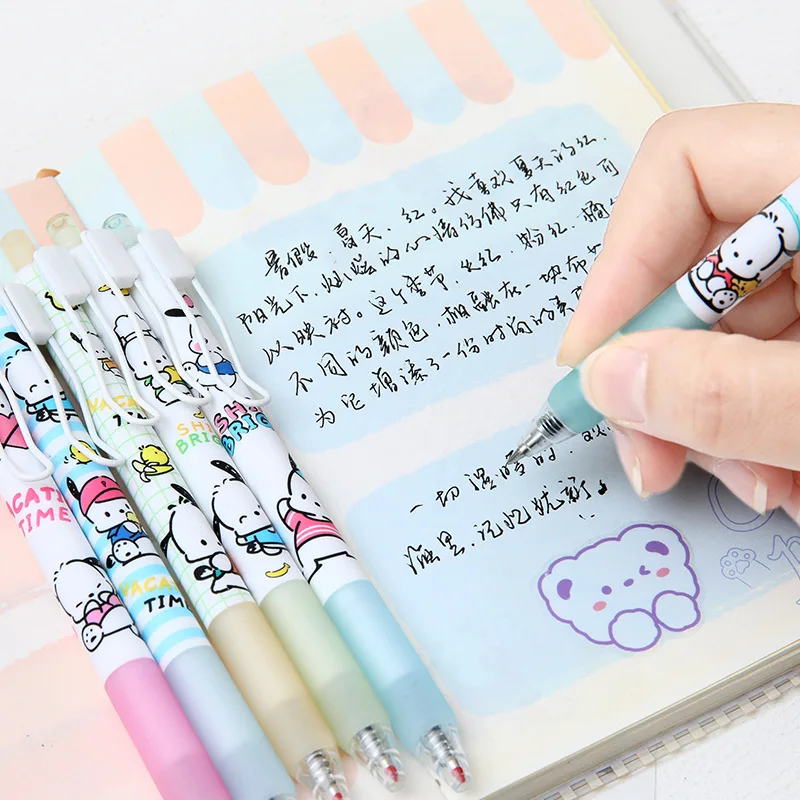 暑假 夏天、红。我喜欢夏天的红.
阳光下.灿烂的心情仿佛只有红色可
以映衬。这个季节.大红.粉红.橘
不同的颜色.相融在一块布
为记增添了一份时尚的美
一切温
.记忆犹新。
VACATI
TIME
VACAT
TIME
VACATI
TIME
SHI
BRIG
SHI
BRIG